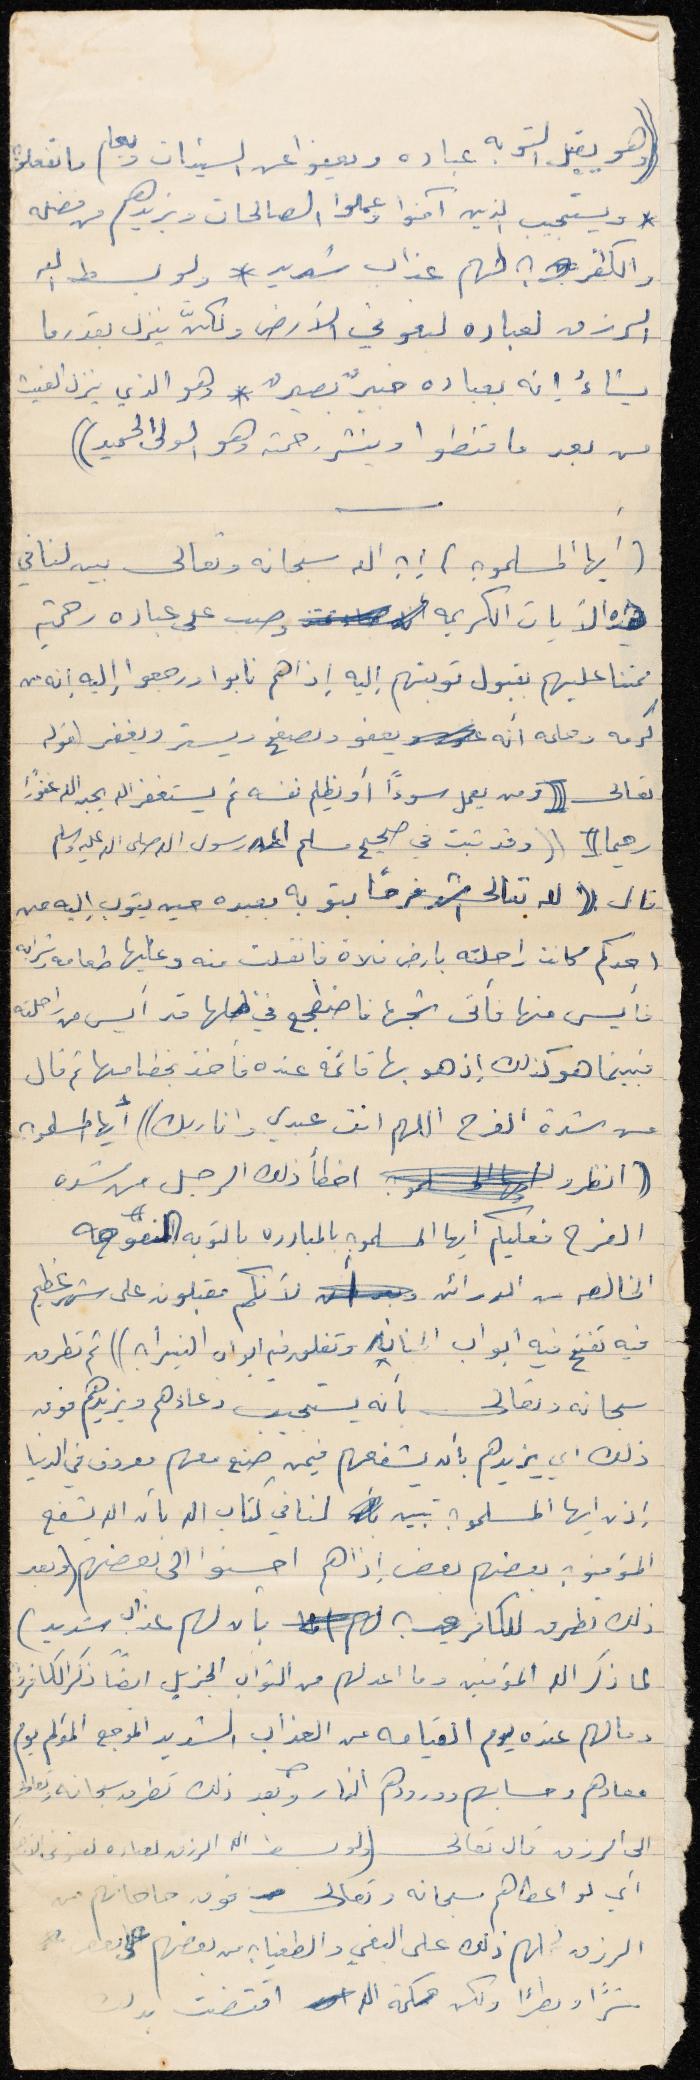 ((وهو يقبل التوبه عباده ويعفوا عن السيئات ويعلم ما تفعلون
* ويستجيب الذين آمنوا وعملوا الصالحات ويزيدهم من فضله
والكفرون لهم عذاب شديد * ولو بسط الله
الرزق لعباده لبغو في الأرض ولكنّ ينزل بقدر ما
يشاءُ إنه بعباده خبيرٌ بصيرٌ * وهو الذي ينزل الغيث
من بعد ما قنطوا وينشر رحمته وهو الولي الحميد))
(أيها المسلمون) إن الله سبحانه وتعالى بين لنا في
هذه الآيات الكريمه على عباده رحمته
ممتنا عليهم بقبول توبتهم إليه إذا هم تابوا ورجعوا إليه إنه من
كرمه وحلمه أنه يعفو ويصفح ويستر ويغفر لقوله
تعالى ((ومن يعمل سوءاً أو يظلم نفسه ثم يستغفر الله يجد الله غفورًا
رحيما)) ((وقد ثبت في صحيح مسلم رسول الله صلى الله عليه وسلم
قال ((لله تعالى اشد فرحًا بتوبه بعبده حين يتوب إليه من
احدكم كانت راحلته بارض فلاة فانفلتت منه وعليها طعامه وشرابه
فأيس منها فأتى شجرة فاضطجع في ظلها قد أيس من راحلته
فبينما هو كذلك إذ هو بها قائمة عنده فأخذ بخطامها ثم قال
من شدة الفرح اللهم انت عبدي وانا ربك)) أيها المسلمون
((انظروا اخطأ ذلك الرجل من شده
الفرح فعليكم ايها المسلمون بالمبادره بالتوبه النصوحه
الخالصه من لأنكم مقبلون على شهر عظيم
فيه تفتح فيه ابواب الجنان وتغلق فيه ابواب النيران)) ثم تطرق
سبحانه وتعالى بأنه يستجيب دعاؤهم ويزيدهم فوق
ذلك اي يزيدهم بأن يشفعهم فيمن صنع معهم معروف في الدنيا
إذن ايها المسلمون تبين لنا في كتاب الله بأن الله يشفع
المؤمنون بعضهم بعض إذا هم احسنوا الى بعضهم (وبعد
ذلك تطرق للكافرين بأن لهم عذاب شديد)
لما ذكر الله المؤمنين وما اعد لهم من الثواب الجزيل ايضاً ذكر الكافرون
ومالهم عنده يوم القيامه من العذاب الشديد الموجع المؤلم يوم
معادهم وحسابهم وورودهم النار وبعد ذلك تطرق سبحانه وتعالى
الى الرزق قال تعالى (ولو بسط الله الرزق لعباده لبغو في الارض
أي لو اعطاهم سبحانه وتعالى فوق حاجاتهم من
الرزق ذلك على البغي والطغيان من بعضهم على بعض
شرًا وبطرًا ولكن حكمة الله اقتضت بذلك